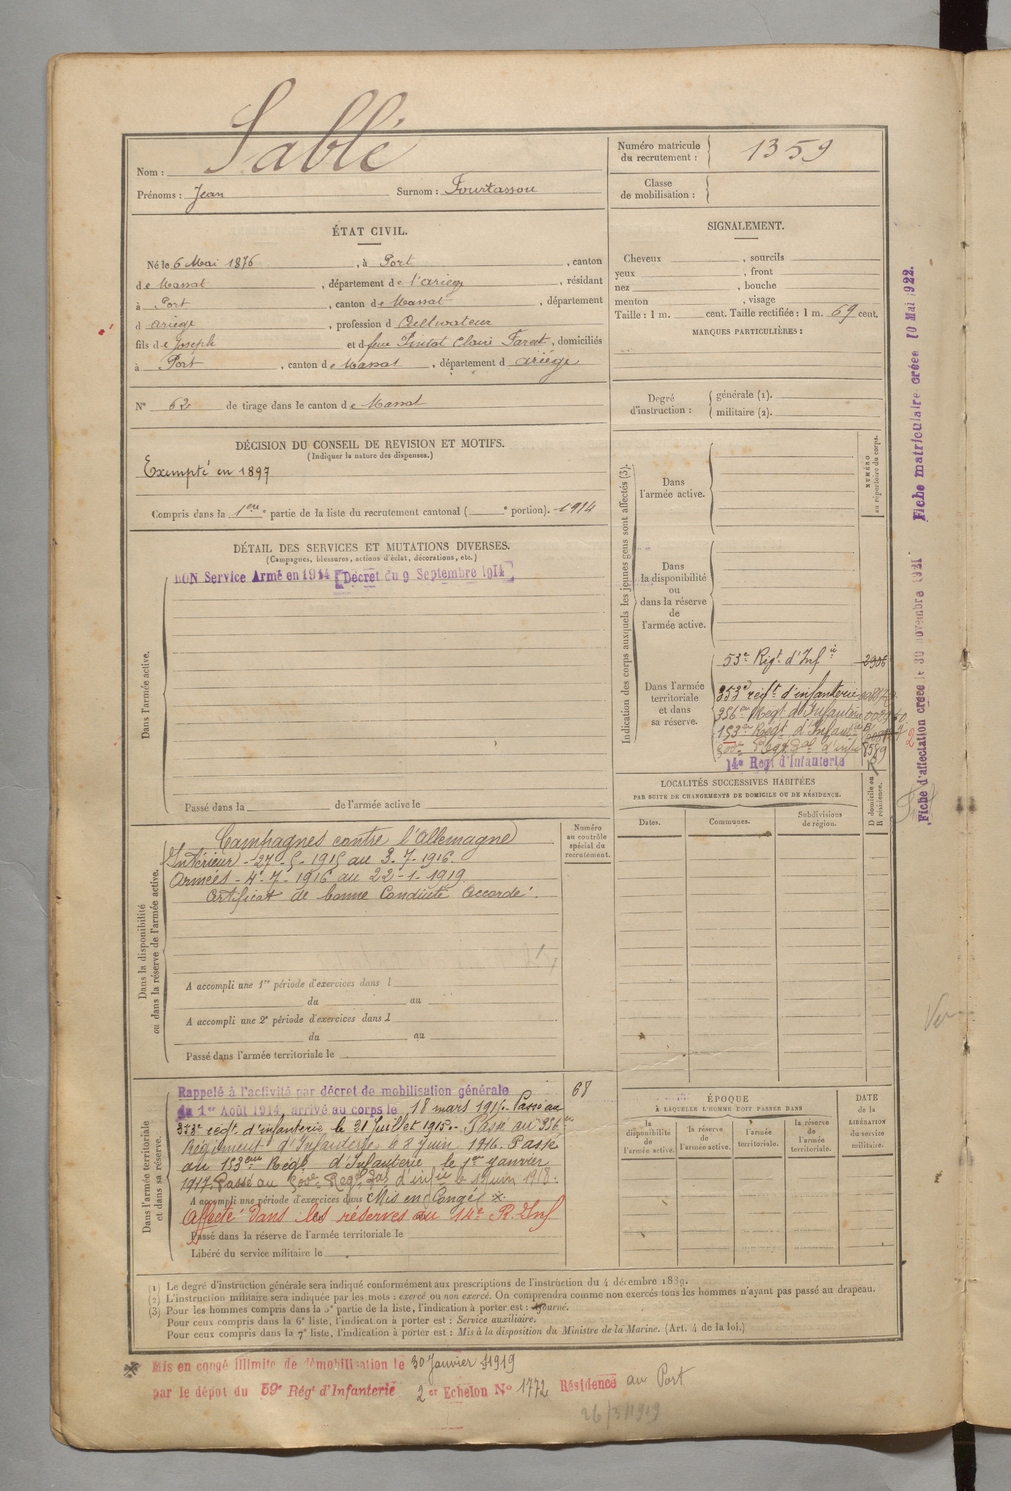 Nom : Sablé
Prénoms : Jean Surnom : Fourtassou
Numéro matricule du recrutement : 1359
Classe de mobilisation :
ÉTAT CIVIL.
Né le 6 Mai 1876, à Port, canton
de Massat, département de l'ariège, résidant
à Port, canton de Massat, département
d ariège, profession d Cultivateur
fils de Joseph et d feue Claire, domiciliés
à Port, canton de Massat, département d ariège
N° 62 de tirage dans le canton de Massat
SIGNALEMENT.
Cheveux , sourcils
yeux , front
nez , bouche
menton , visage
Taille : 1 m. cent. Taille rectifiée : 1 m. 69 cent.
MARQUES PARTICULIÈRES :
Degré d'instruction : générale (1).
militaire (2).
DÉCISION DU CONSEIL DE REVISION ET MOTIFS.
(Indiquer la nature des dispenses.)
Exempté en 1897
Compris dans la 1ere partie de la liste du recrutement cantonal ( e portion). 1914
DÉTAIL DES SERVICES ET MUTATIONS DIVERSES.
(Campagnes, blessures, actions d'éclat, décorations, etc.)
BON Service Armé en 1914 [Décret du 9 Septembre 1914]
Dans l'armée active.
Passé dans la de l'armée active le
Indication des corps auxquels les jeunes gens sont affectés (3).
NUMÉRO au répertoire du corps.
Dans l'armée active.
Dans la disponibilité ou dans la réserve de l'armée active.
Dans l'armée territoriale et dans sa réserve.
53e Régt. d'Infie
353e régt d'infanterie
356e Régt d'Infanterie
153e Régt d'Infanterie
14e Régt d'Infanterie
LOCALITÉS SUCCESSIVES HABITÉES
PAR SUITE DE CHANGEMENTS DE DOMICILE OU DE RÉSIDENCE.
Dates. Communes. Subdivisions de région. D domicile ou R résidence.
Dans la disponibilité ou dans la réserve de l'armée active.
Numéro au contrôle spécial du recrutement.
Campagnes contre l'Allemagne
Intérieur - 27-5-1915 au 3-7-1916
Armées - 4-7-1916 au 22-1-1919
Certificat de bonne Conduite Accordé.
A accompli une 1re période d'exercices dans l
du au
A accompli une 2e période d'exercices dans l
du au
Passé dans l'armée territoriale le
Dans l'armée territoriale et dans sa réserve.
Rappelé à l'activité par décret de mobilisation générale 68
du 1er Août 1914, arrivé au corps le 18 mars 1915. Passé au
353e régt. d'infanterie, le 21 Juillet 1915. Passé au 356e
Régiment d'Infanterie le 2 Juin 1916. Passé
au 153eme Régt d'Infanterie le 1er Janvier
1917. Passé au d'infie le 1 Juin 1918.
A accompli une période d'exercices dans Mis en Congés x.
Affecté dans les réserves au 14e R. Inf
Passé dans la réserve de l'armée territoriale le
Libéré du service militaire le
ÉPOQUE
À LAQUELLE L'HOMME DOIT PASSER DANS
la disponibilité de l'armée active. la réserve de l'armée active. l'armée territoriale. la réserve de l'armée territoriale.
DATE de la LIBÉRATION du service militaire.
(1) Le degré d'instruction générale sera indiqué conformément aux prescriptions de l'instruction du 4 décembre 1889.
(2) L'instruction militaire sera indiquée par les mots : exercé ou non exercé. On comprendra comme non exercés tous les hommes n'ayant pas passé au drapeau.
(3) Pour les hommes compris dans la 5e partie de la liste, l'indication à porter est : Ajourné.
Pour ceux compris dans la 6e liste, l'indication à porter est : Service auxiliaire.
Pour ceux compris dans la 7e liste, l'indication à porter est : Mis à la disposition du Ministre de la Marine. (Art. 4 de la loi.)
Mis en congé illimité de démobilisation le 30 Janvier 1919
par le dépôt du 59e Régt d'Infanterie 2er Echelon N° 1772 Résidence au Port
26/3/1919
Fiche d'affectation créée le 30 novembre 1921
Fiche matriculaire créée 10 Mai 1922.